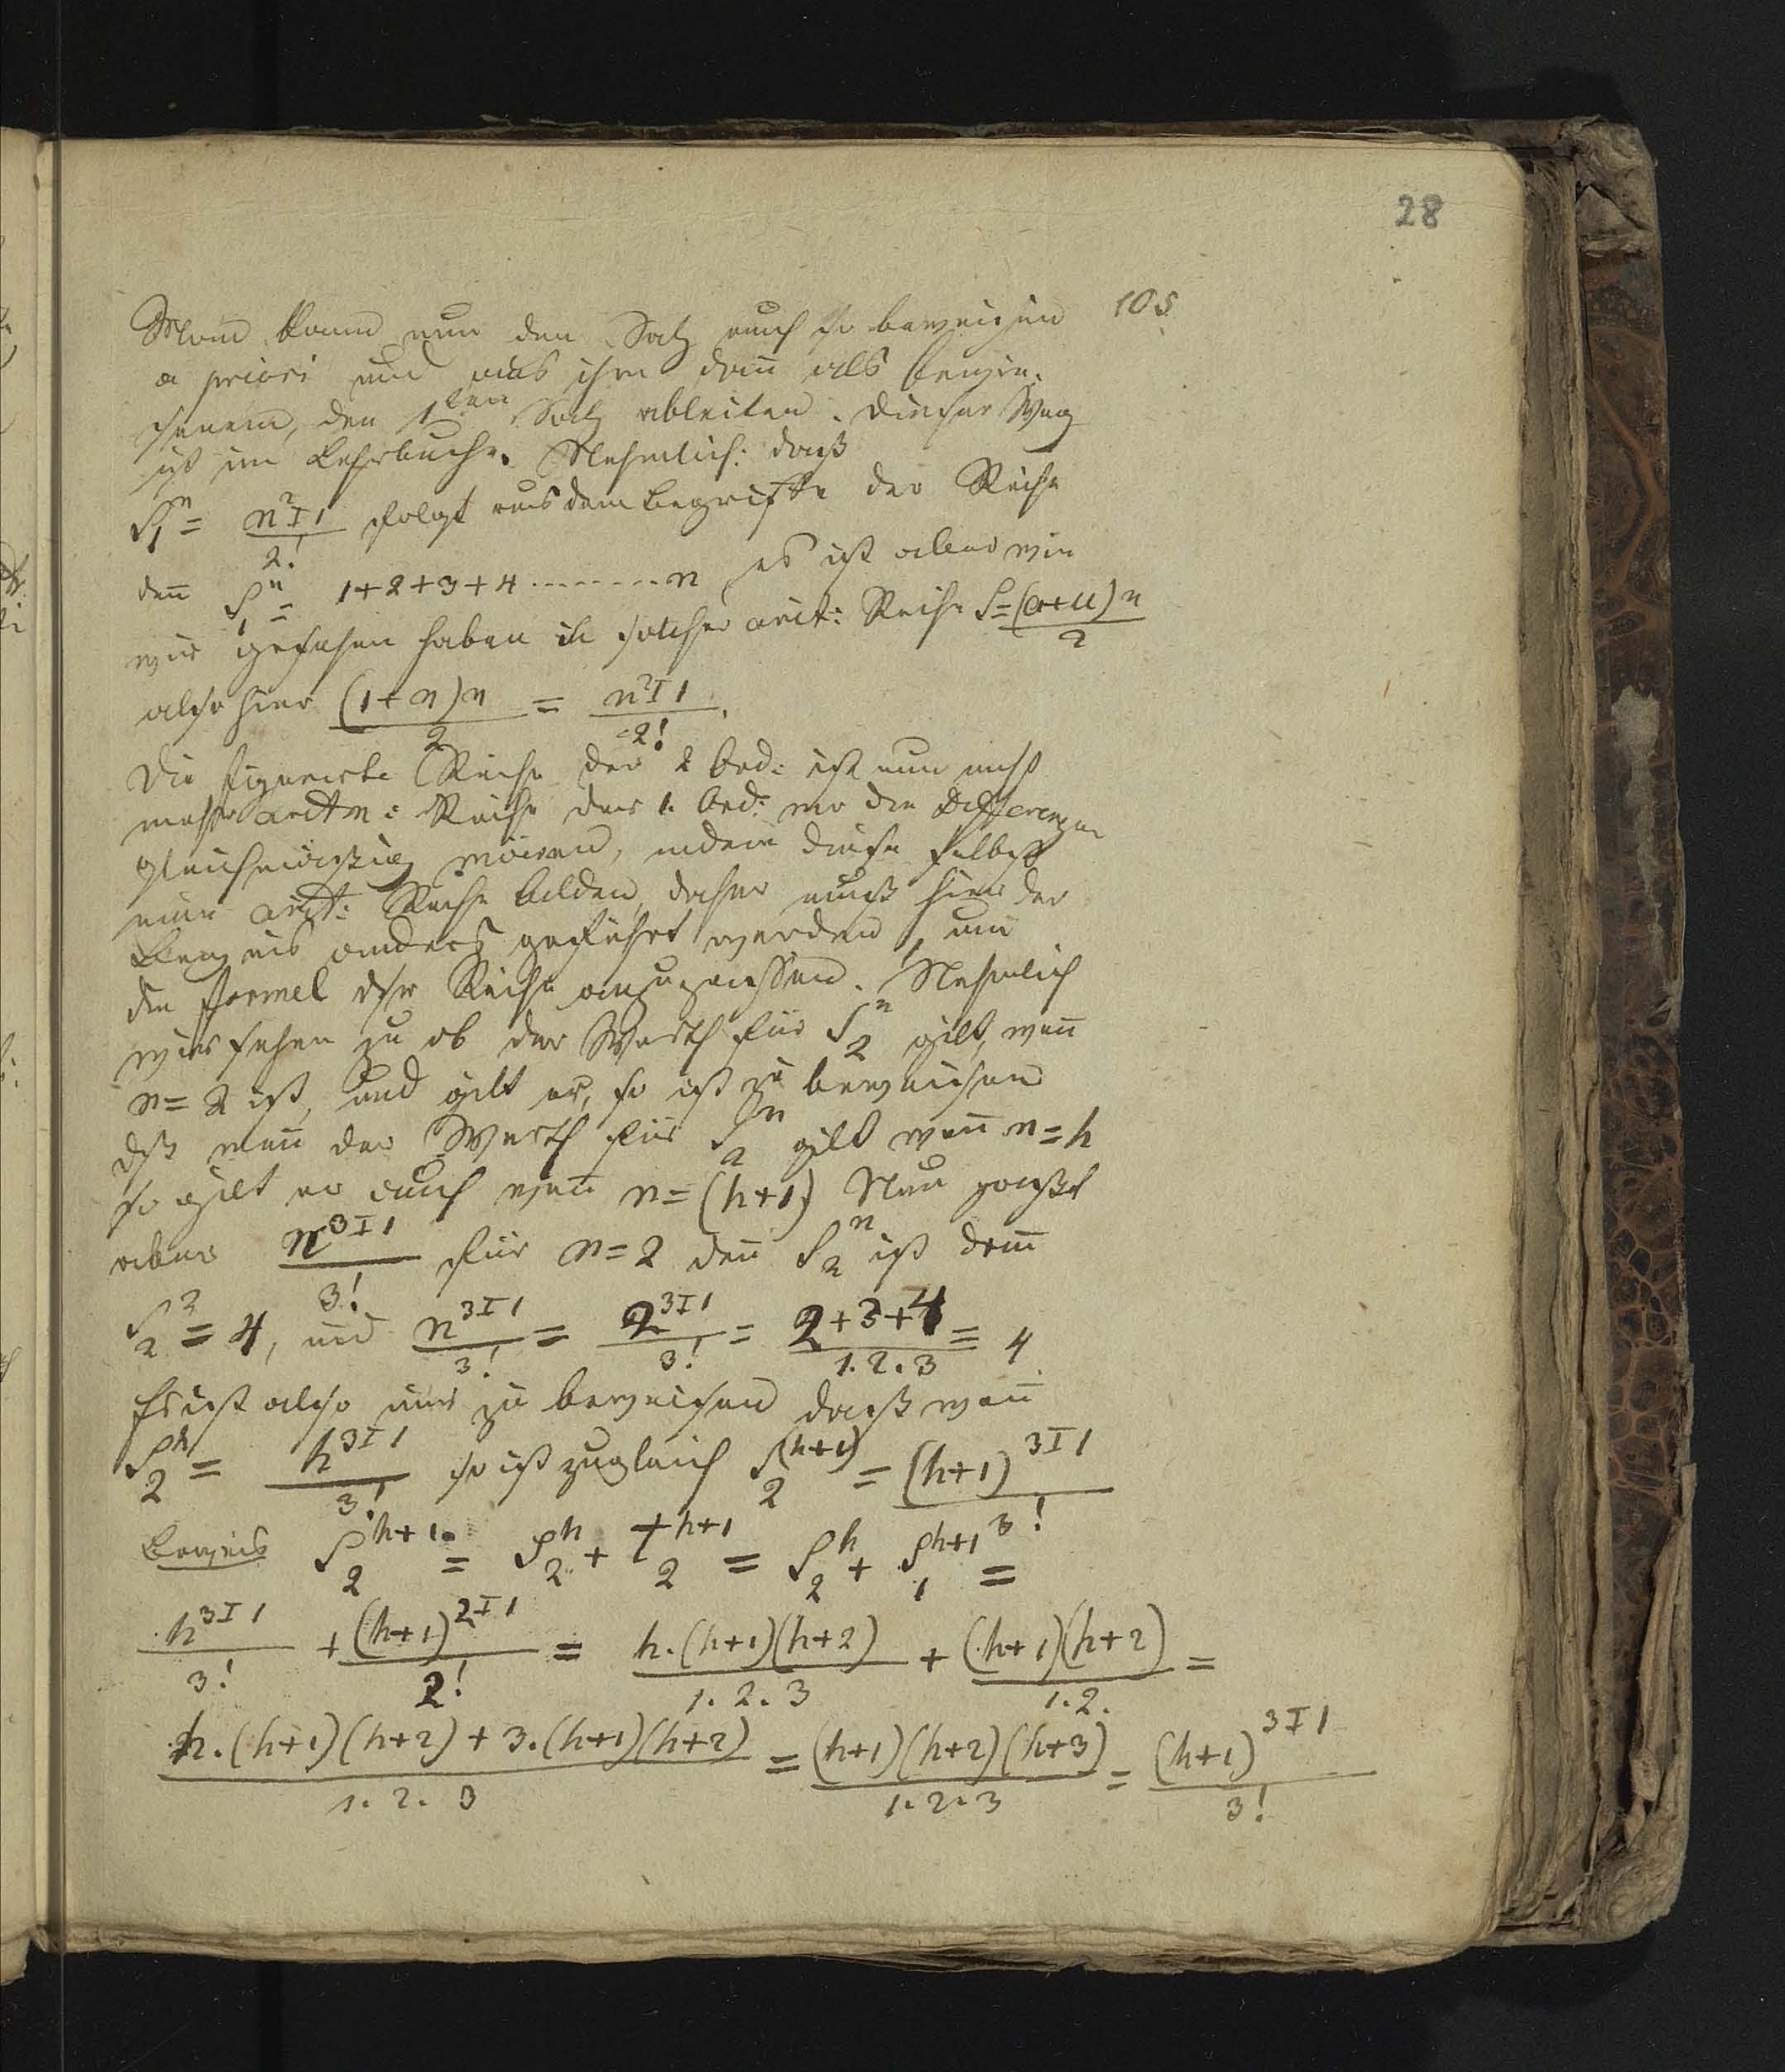 28
105
Man kann nun den Satz auch so beweisen
a priori und aus ihm dan als bewie-
senem, den 1ten Satz ableiten. Dieser Weg
ist im Lehrbuche. Nehmlich: daß
S₁ⁿ = n²Ɪ¹/2! folgt aus dem Begriffe der Reihe
den S₁ⁿ = 1+2+3+4........n es ist aber wie
wir gesehen haben in solcher arit: Reihe S=(a+u)n/2
also hier (1+n)n/2 = n²Ɪ¹/2!.
Die figurirte Reihe der 2 Ord: ist nun nicht
mehr aritm: Reihe der 1. Ord: wo die Differenzen
gleichmäßig wären, indem diese selbst
eine arit: Reihe bilden, daher muß hier der
Beweis anders geführt werden, um
die Formel der Reihe anzupassen. Nehmlich
wir sehen zu ob der Werth für S₂ⁿ gilt, wen
n=2 ist, und gilt er, so ist zu beweisen
dß wen der Werth für S₂ⁿ gilt wen n=h
so gilt er auch wen n=(h+1) Nun paßt
aber n³Ɪ¹/3! für n=2 den S₂ⁿ ist dan
S₂²=4, und n³Ɪ¹/3! = 2³Ɪ¹/3! = 2+3+4/1.2.3 = 4
Es ist also nur zu beweisen daß wen
S₂ʰ = h³Ɪ¹/3! so ist zugleich S₂⁽ʰ⁺¹⁾ = (h+1)³Ɪ¹/3!
Beweis S₂ʰ⁺¹ = S₂ʰ + T₂ʰ⁺¹ = S₂ʰ + S₁ʰ⁺¹ =
h³Ɪ¹/3! + (h+1)²Ɪ¹/2! = h.(h+1)(h+2)/1.2.3 + (h+1)(h+2)/1.2. =
h.(h+1)(h+2)+3.(h+1)(h+2)/1.2.3 = (h+1)(h+2)(h+3)/1.2.3 = (h+1)³Ɪ¹/3!